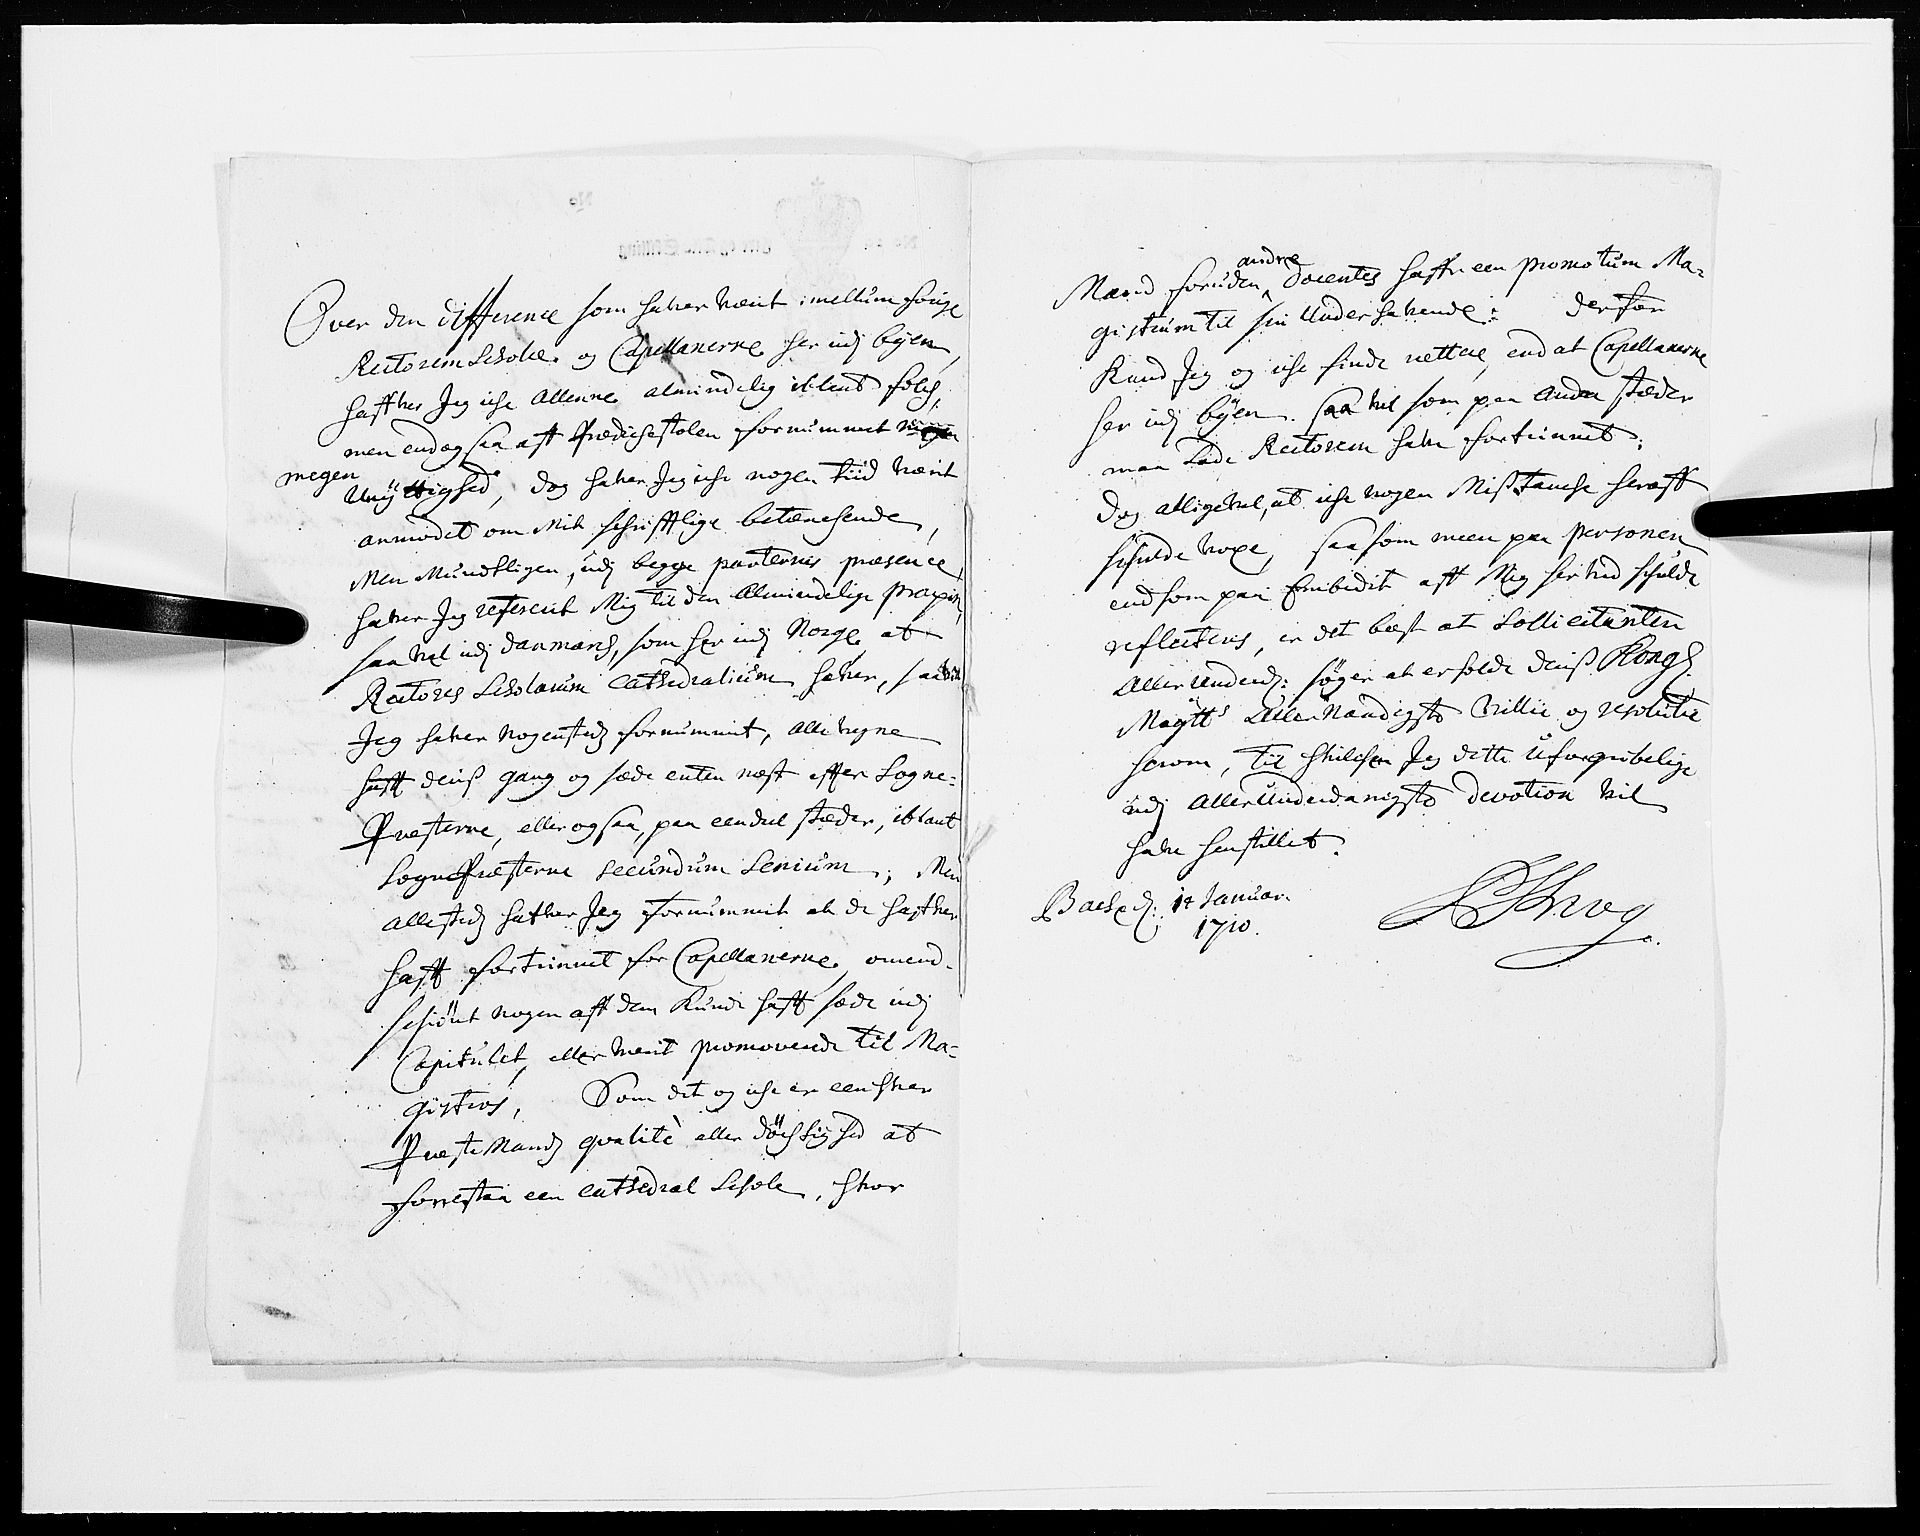 Over den difference som haver verit imellum forige
Rectorem Scholæ og Capellanerne her udj byen,
haffver Jeg iche allenne almindelig iblant folch,
men endog saa aff Prædichestolen fornummet
megen
Unyttighed, dog haver Jeg iche nogen tiid værit
anmodet om Mit schrifftlige betænchende,
Men Mundtligen, udj begge parternis præsence,
haver Jeg refererit Mig til den Almindelige praxin,
saa vel udj Danmarch, som her udj Norge, at
Rectores Scholarum Cathedralium haver, saa vit
Jeg haver nogensteds fornummit, alle vegne
hafft deris gang og sæde enten næst effter Sogne-
Præsterne, eller ogsaa, paa eendeel stæder, iblant
SognePræsterne secundum Senium; Men
allesteds hafver Jeg fornummit at de haffver
hafft fortrinnet for Capellanerne, omend-
schiönt nogen aff dem kunde hafft sæde udj
Capitulet, eller værit promoverede til Ma-
gistros, Som det og iche er een hver
PresteMands qvalité eller döchtighed at
forrestaa een Cathedral Schole, hvor
Mand foruden andre Docentes haffr een promotum Ma-
gistrum til sin Underhavende: derfor
Kand Jeg og iche finde rettere, end at Capellanerne
her udj byen saa vel som paa andre stæder
maa lade Rectorem have fortrinnet;
Dog alligevel, at iche nogen Mistanche heraff
schulde voxe, saa som meer paa personen
end som paa Embedit aff Mig herved schulde
reflecteris, er det best at Sollicitanten
Allerunderd: söger at erholde deris Kongl.
Maytts AllerNaadigste Villie og resolution
herom, til hvilchen Jeg dette uforgribelige
udj Allerunderdanigste devotion vil
have henstillet.
d: 14 Januar.
1710.